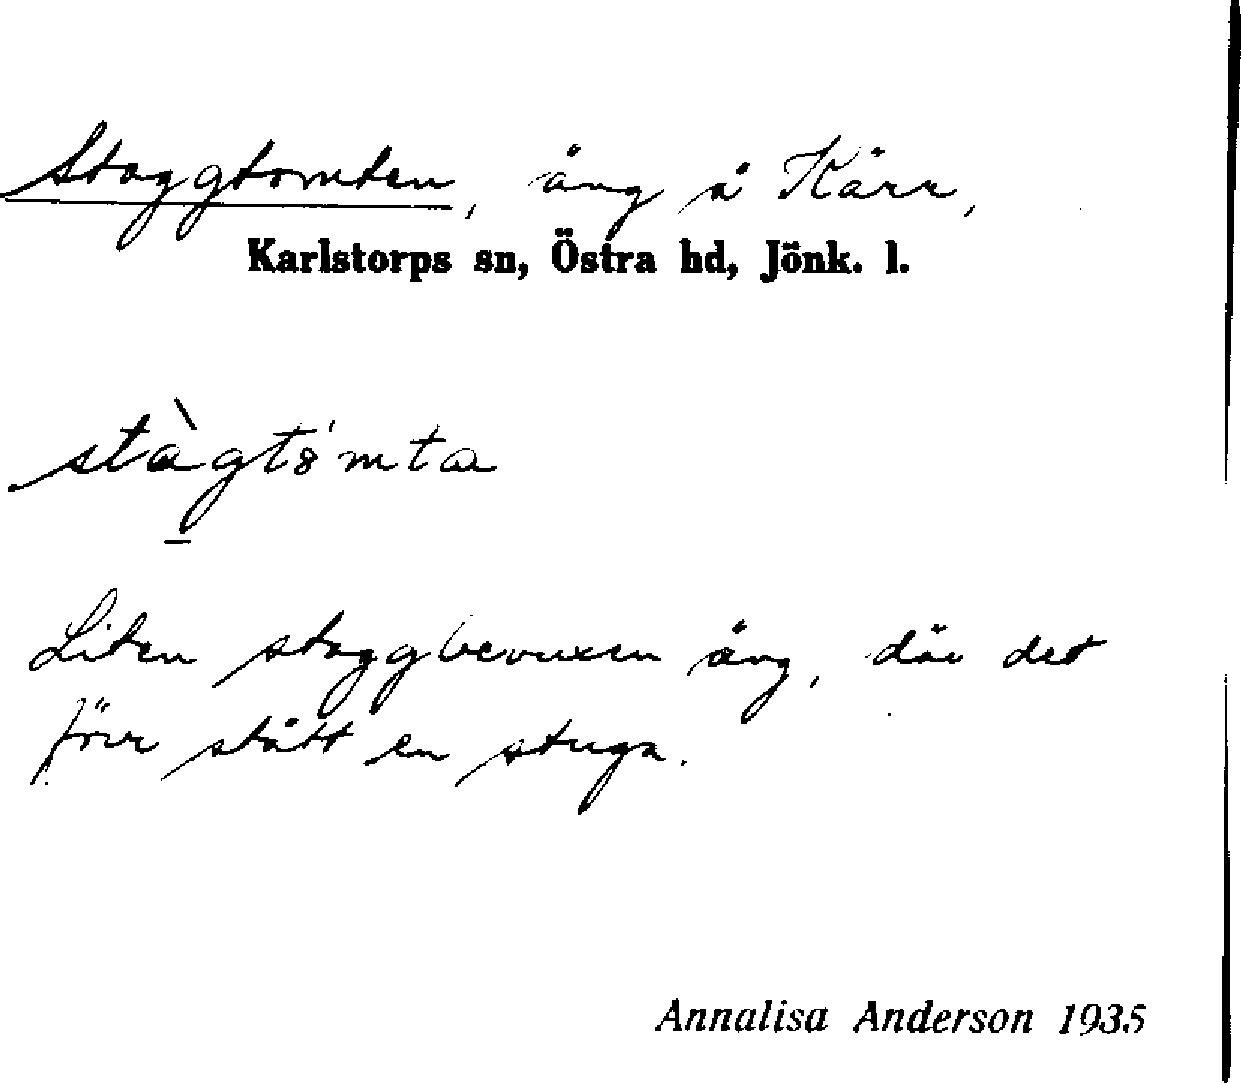 Staggtomten, äng å Kärr,
Karlstorps sn, Östra hd, Jönk. l.
stàgtȣ́mta
Liten staggbevuxen äng, där det
förr stått en stuga.
Annalisa Anderson 1935